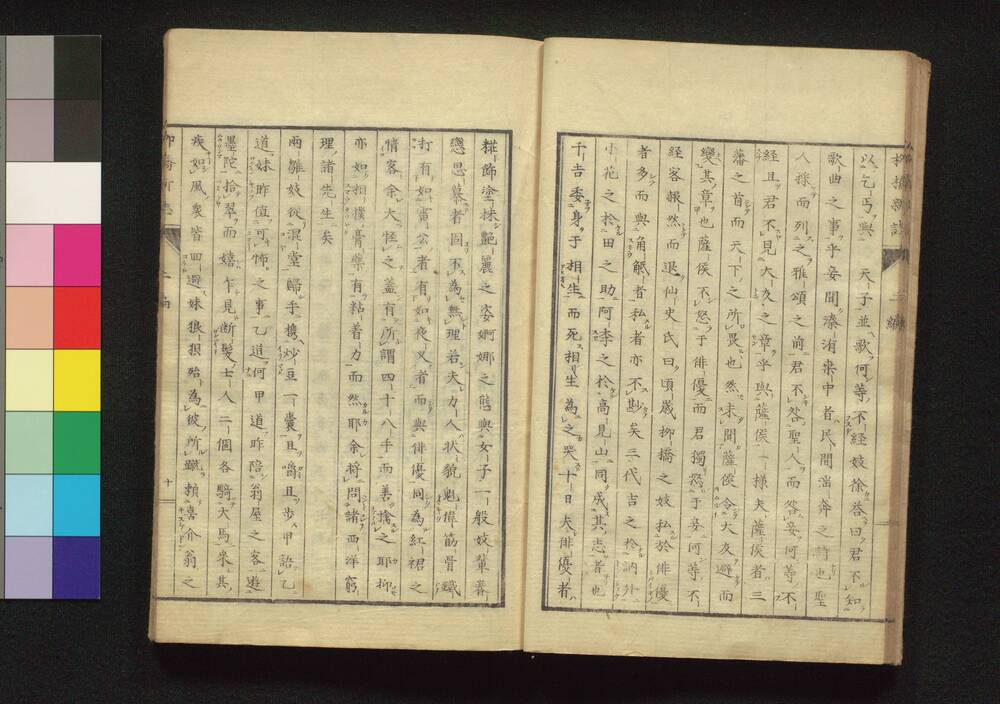 以乞丐與　天子並歌何等不経妓徐答曰君不知
歌曲之事乎妾聞溱洧桒中者民間淫奔之詩也聖
人採而列之雅頌之前君不咎聖人而咎妾何等不
経且君不見大友之章乎與薩侯一様夫薩侯者三
藩之首而天下之所畏也然未聞薩侯令大友避而
變其章也薩侯不怒于俳優而君獨怒于妾何等不
経客赧然而退仙史氏曰頃歳柳橋之妓私於俳優
者多而與角觝者私者亦不尠矣三代吉之於訥升
小花之於田之助阿李之於高見山同成其志者也
千吉委身于相生而死相生為之哭十日夫俳優者
糚飾塗抹艶麗之姿婀娜之態與女子一般妓輩眷
戀思慕者固不為無理若夫力人状貌魁偉筋骨鐵
打有如雷公者有如夜叉者而與俳優同為紅裙之
情客余大怪之蓋有所謂四十八手而善擒之耶抑
亦如相撲膏藥有粘着力而然耶余将問諸西洋窮
理諸先生矣
兩雛妓従混堂歸手携炒豆一嚢且嚼且歩甲語乙
道妹昨值可怖之事乙道何甲道昨陪翁屋之客遊
墨陀拾翠而嬉乍見断髪士人二個各騎大馬来其
疾如風衆皆四避妹狼狽殆為彼所蹴頼喜介翁之
二編
十